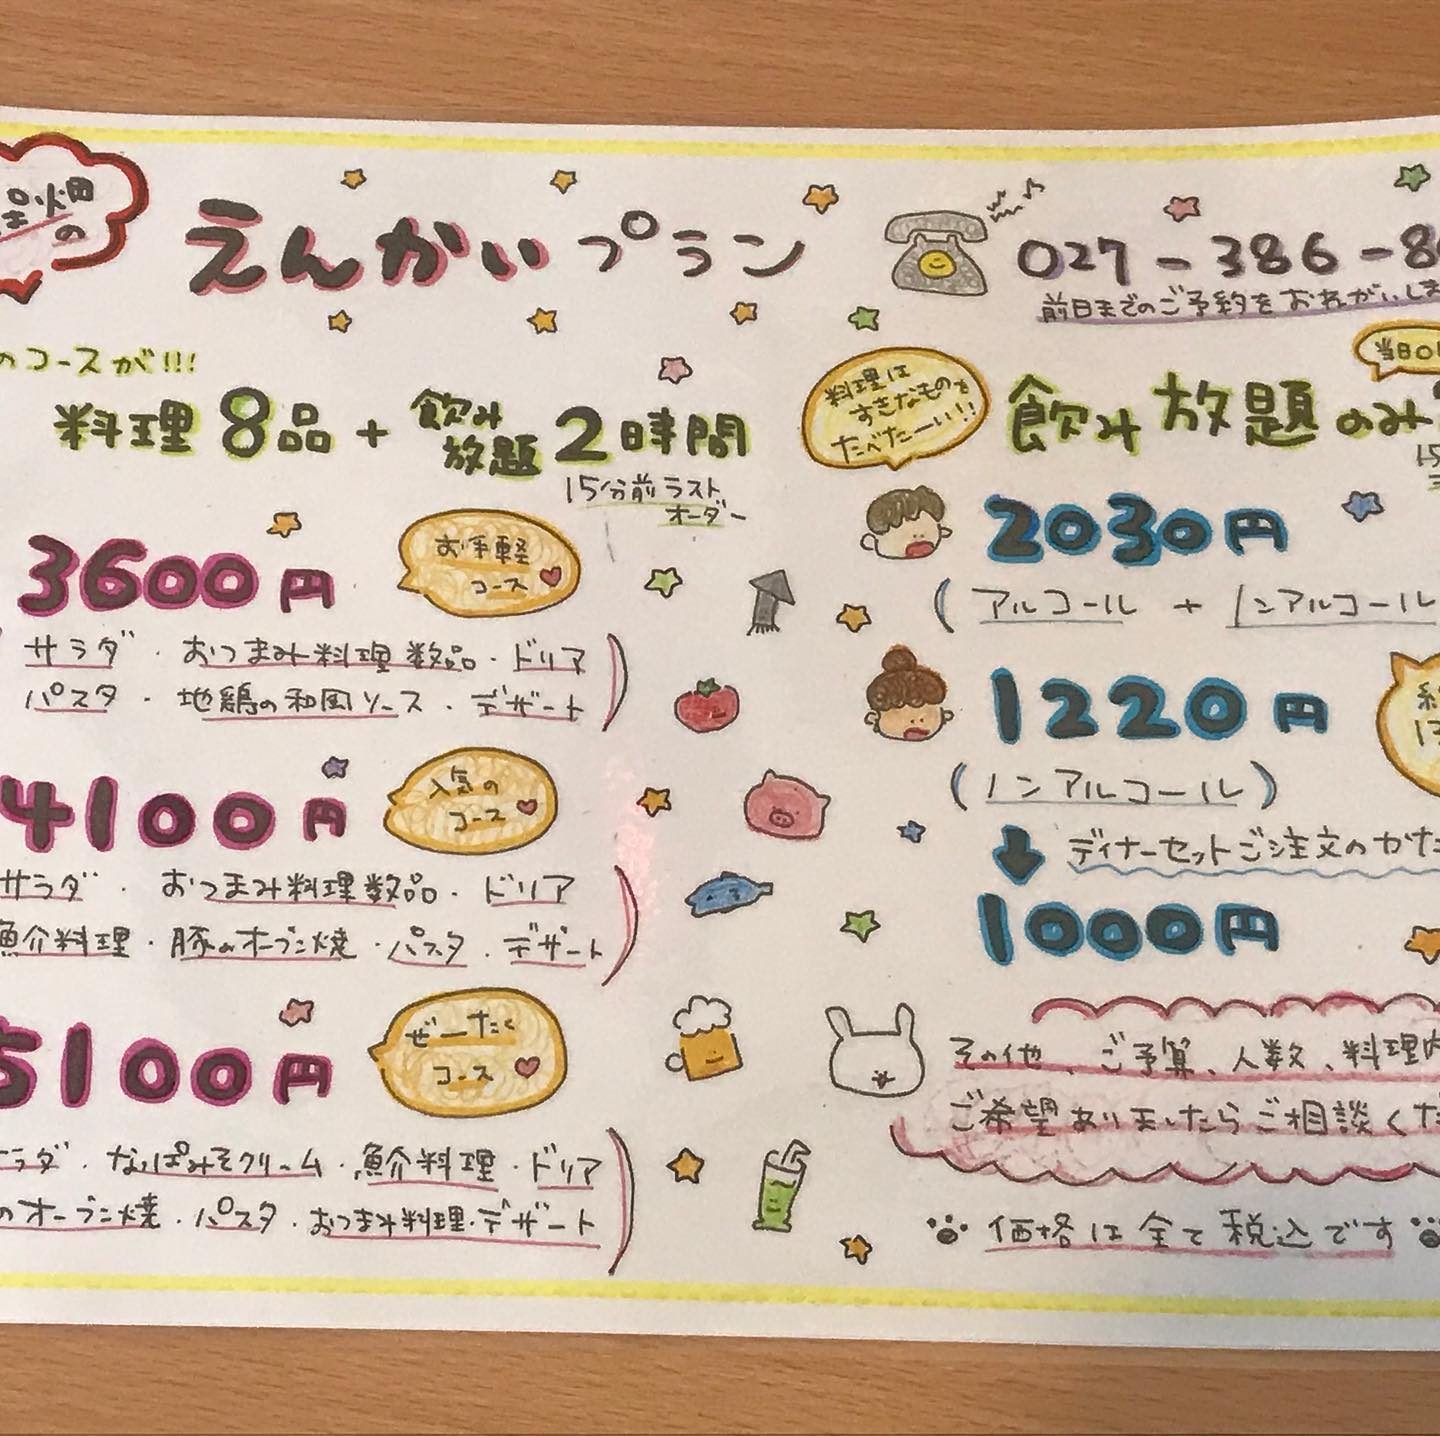 畑
の
えんかいプラン
027-386-8
前日までのご予約をおねがいしま
のコースが!!!
料理8品+飲み放題2時間
15分前ラスト
オーダー
3600円
お手軽
コース
サラダ・おつまみ料理数品・ドリア
パスタ・地鶏の和風ソース・デザート
4100円
人気の
コース
サラダ・おつまみ料理数品・ドリア
魚介料理・豚のオーブン焼・パスタ・デザート
5100円
ぜーたく
コース
ラダ・なっぱみそクリーム・魚介料理・ドリア
のオーブン焼・パスタ・おつまみ料理・デザート
料理は
すきなものを
たべたーい!!
当日O
飲み放題のみ
15
2030円
(アルコール+ノンアルコール
1220円
(ノンアルコール)
ディナーセットご注文のかた
1000円
その他、ご予算、人数、料理内
ご希望ありましたらご相談くだ
価格は全て税込です